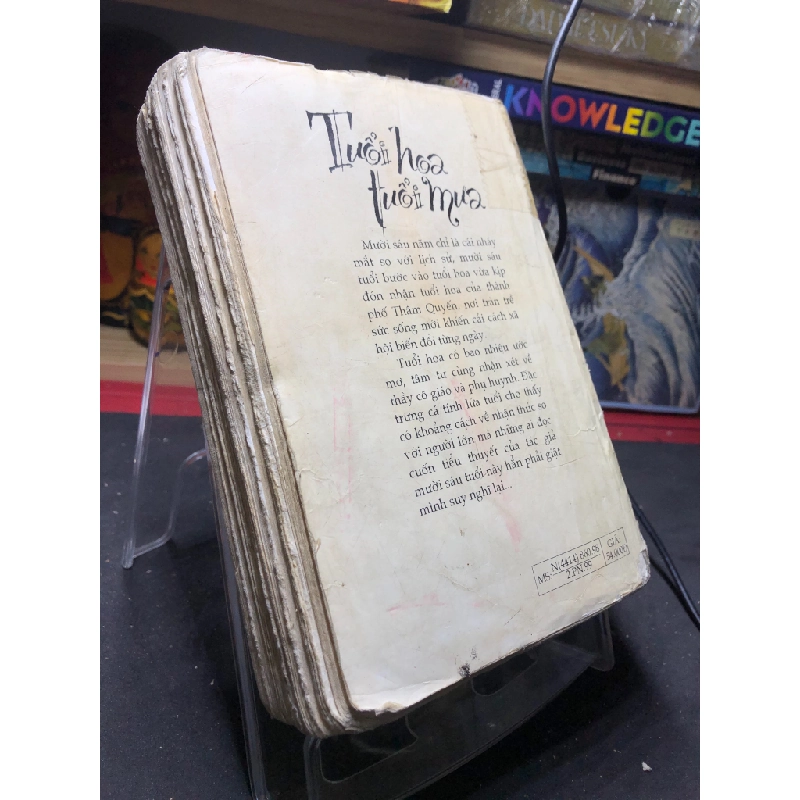 KNOWLEDGE
Finance
Tuổi hoa
tuổi mưa
Mười sáu năm chỉ là cái nháy
mắt so với lịch sử, mười sáu
tuổi bước vào tuổi hoa vừa kịp
đón nhận tuổi hoa của thành
phố Thẩm Quyến, nơi tràn trề
sức sống mới khiến cải cách xã
hội biến đổi từng ngày.
Tuổi hoa có bao nhiêu ước
mơ, tâm tư cùng nhận xét về
thầy cô giáo và phụ huynh. Đặc
trưng cá tính lứa tuổi cho thấy
có khoảng cách về nhận thức so
với người lớn mà những ai đọc
cuốn tiểu thuyết của tác giả
mười sáu tuổi này hẳn phải giật
mình suy nghĩ lại...
MS:
GIÁ: